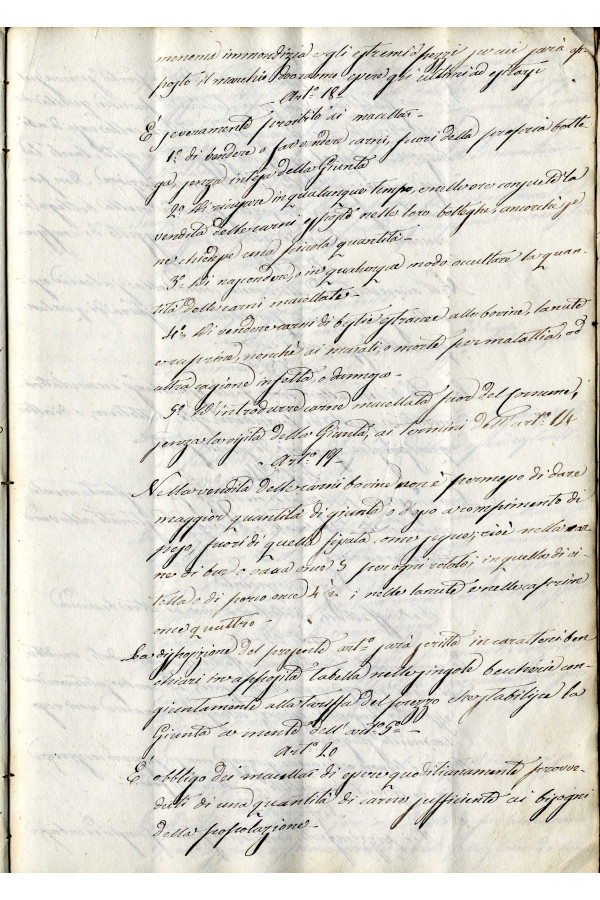 menoma immondizia e gli estremi o pezzi su cui sarà ap-
posto il marchio dovranno essere gli ultimi ad esitarsi
Art.º 18.
È severamente proibito ai macellai
1º. di vendere o far vendere carni, fuori della propria botte
ga, senza intesa della Giunta
2º. Di ricusare in qualunque tempo, e nelle ore consuete la
vendita delle carni esposte nelle loro botteghe, ancorchè se
ne chiedesse una piccola quantità.
3º. Di nascondere, o in qualunque modo occultare la quan-
tità delle carni macellate.
4º. Di vendere carni di bestie estranee alle bovine, lanute
e caprine, nonchè ai maiali, o morte per malattia, od
altra cagione infetta o dannosa.
5º. D'introdurre carne macellata fuori del Comune,
senza la visita della Giunta, ai termini dell'art.º 14
Art.º 19.
Nella vendita delle carni bovine non è permesso di dare
maggior quantità di giunta o d'osso a compimento di
peso, fuori di quella fissata come segue, cioè nella car-
ne di bue o vacca once 5 per ogni rotolo; in quella di vi-
tella o di porco once 4 ½ ; nelle lanute e nelle caprine
once quattro.
La disposizione del presente art.º sarà scritta in caratteri ben
chiari in apposita tabella nelle singole beccherie con-
giuntamente alla tariffa del prezzo che stabilisce la
Giunta a mente dell'art.º 5º.
Art.º 20
È obbligo dei macellai di essere quotidianamente provve-
duti di una quantità di carne sufficiente ai bisogni
della popolazione.